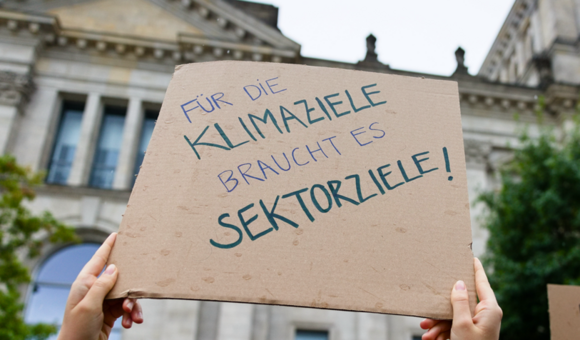 FÜR DIE
KLIMAZIELE
BRAUCHT ES
SEKTORZIELE!